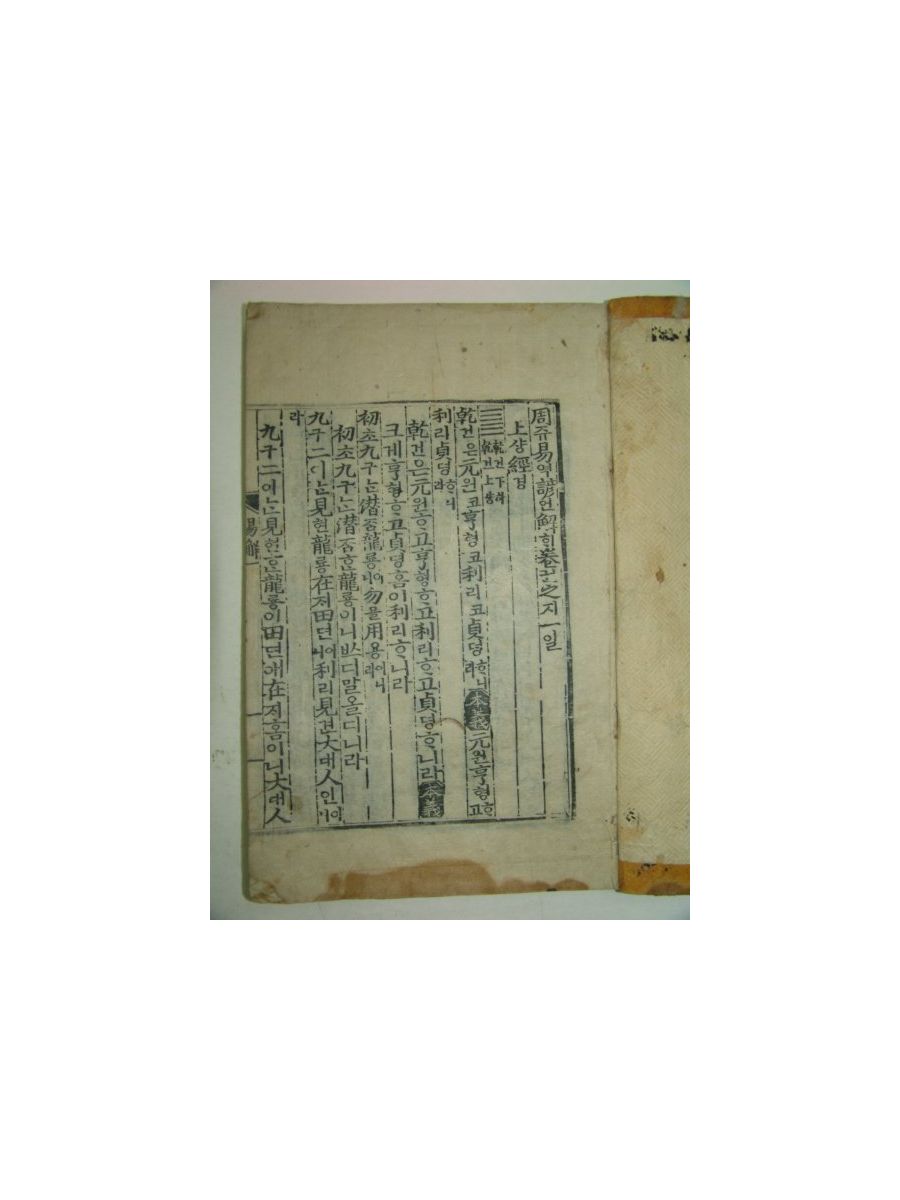 周쥬易역諺언解ᄒᆡ卷권之지一일
上샹經경
乾건下하 乾건上샹
乾건은元원코亨형코利리코貞뎡ᄒᆞ니라 本義 元원亨형ᄒᆞ고
利리라貞뎡ᄒᆞ니라
乾건은元원ᄒᆞ고亨형ᄒᆞ고利리ᄒᆞ고貞뎡ᄒᆞ니라 本義
크게亨형ᄒᆞ고貞뎡홈이利리ᄒᆞ니라
初초九구ᄂᆞᆫ潛ᄌᆞᆷ龍룡이니勿믈用용이니라
初초九구ᄂᆞᆫ潛ᄌᆞᆷᄒᆞᆫ龍룡이니ᄡᅳ디말올디니라
九구二이ᄂᆞᆫ見현龍룡在ᄌᆡ田뎐이니利리見견大대人인이니
라
九구二이ᄂᆞᆫ見현ᄒᆞᆫ龍룡이田뎐애在ᄌᆡ홈이니大대人
易解